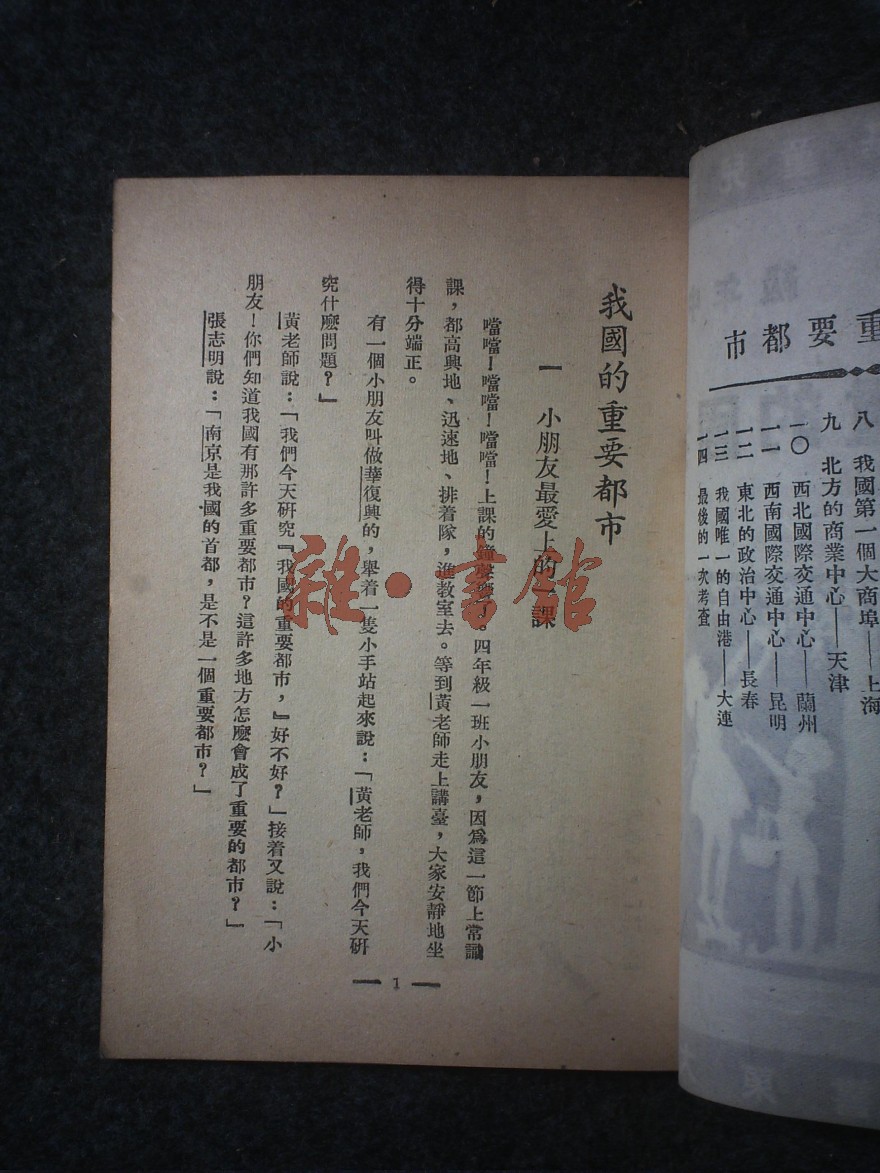 重要都市
八 我國第一個大商埠——上海
九 北方的商業中心——天津
一〇 西北國際交通中心——蘭州
一一 西南國際交通中心——昆明
一二 東北的政治中心——長春
一三 我國唯一的自由港——大連
一四 最後的一次考查
我國的重要都市
一 小朋友最愛上的一課
噹噹！噹噹！噹噹！上課的鐘聲響了。四年級一班小朋友，因爲這一節上常識
課，都高興地、迅速地、排着隊，進教室去。等到黃老師走上講臺，大家安靜地坐
得十分端正。
有一個小朋友叫做華復興的，舉着一隻小手站起來說：「黃老師，我們今天研
究什麽問題？」
黃老師說：「我們今天研究『我國的重要都市，』好不好？」接着又說：「小
朋友！你們知道我國有那許多重要都市？這許多地方怎麽會成了重要的都市？」
張志明說：「南京是我國的首都，是不是一個重要都市？」
— 1 —
雜·書館